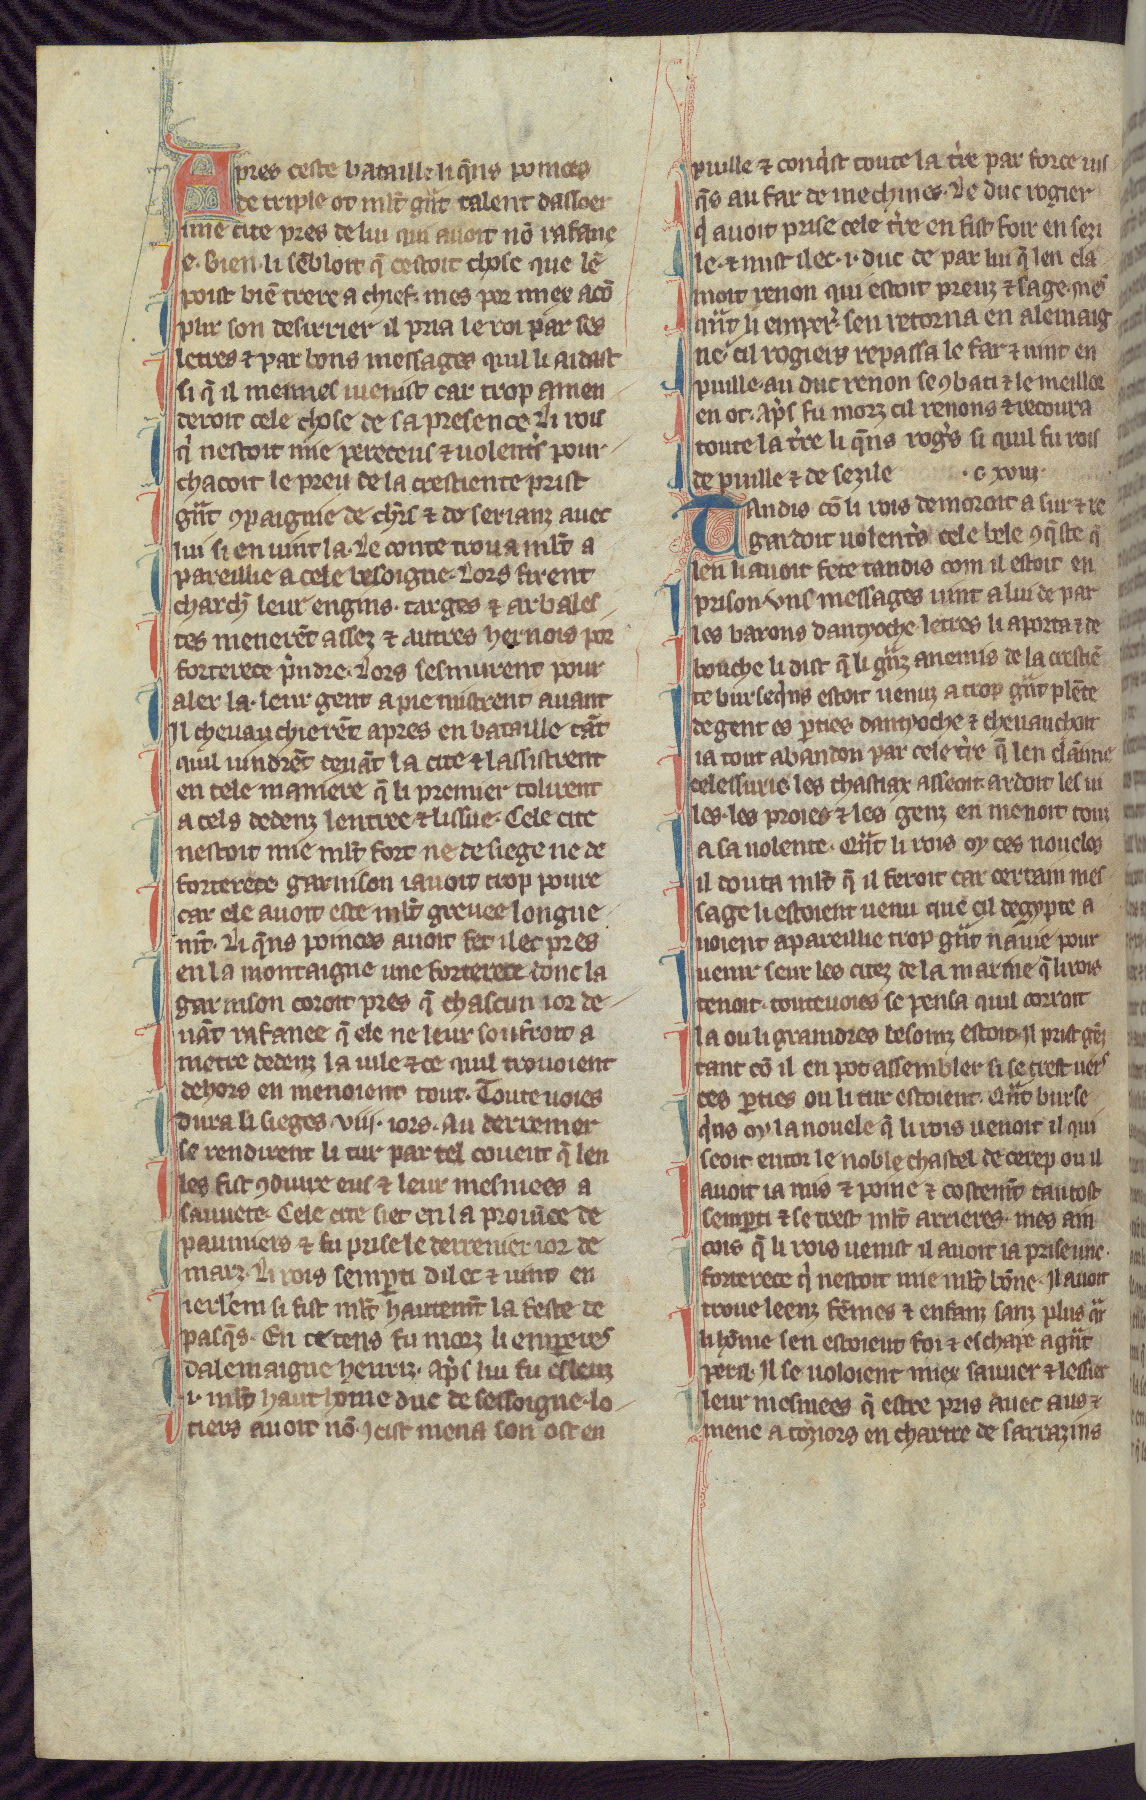 Apres ceste bataille li q̃ns poinces
de triple ot ml̃t grãt talent dasseer
une cite pres de lui qui auoit nõ rafane
e. Bien li sẽbloit q̃ cestoit chose que lẽ
poist biẽ trere a chief. mes por miex acõ
plir son desirrier il pria le roi par ses
letres ⁊ par bons messages quil li aidast
si q̃ il meimes uenist car trop amen
deroit cele chose de sa presence. Li rois
q̾ nestoit mie pereceus ⁊ uolent̾s pour
chacoit le preu de la crestiente prist
grãt ꝯpaignie de chr̃s ⁊ de serianz auec
lui si en uint la. Le conte troua ml̃t a
pareillie a cele besoigne. Lors firent
charch̾ leur engins. targes ⁊ arbales
tes menerẽt assez ⁊ autres hernois por
forterece p̾ndre. Lors sesmurent pour
aler la. leur gent a pie mistrent auant
Il cheuauchierẽt apres en bataille tãt
quil uindrẽt deuãt la cite ⁊ lassistrent
en tele maniere q̃ li premier tolirent
a cels dedenz lentree ⁊ lissue. Cele cite
nestoit mie ml̃t fort ne de siege ne de
forterece garnison i auoit trop poure
car ele auoit este ml̃t greuee longue
mẽt. Li q̃ns poinces auoit fet ilec pres
en la montaigne une forterece donc la
garnison coroit pres q̃ chascun ior de
uãt rafanee q̃ ele ne leur soufroit a
metre dedenz la uile ⁊ ce quil trouoient
dehors en menoient tout. Toute uoies
dura li sieges .viij. iors. Au derrenier
se rendirent li tur par tel couent q̃ len
les fist ꝯduire eus ⁊ leur mesniees a
sauuete. Cele cite siet en la prouĩce de
paumiers ⁊ fu prise le derrenier ior de
marz. Li rois semparti dilec ⁊ uint en
ierl̃em si fist ml̃t hautemẽt la feste de
pasq̃s. En ce tens fu morz li emperres
dalemaigne henriz. ap̾s lui fu esleuz
.i. ml̃t haut home duc de sessoigne. lo
tiers auoit nõ. ꝯcist mena son ost en
puille ⁊ conq̾st toute la t̾re par force ius
q̃s au far de meschines. Le duc rogier
q̾ auoit prise cele t̾re en fist foir en sezi
le. ⁊ mist ilec .i. duc de par lui q̃ len cla
moit renon qui estoit preuz ⁊ sage. mes
q̃nt li emper̾. sen retorna en alemaig
ne. cil rogiers repassa le far ⁊ uint en
puille. au duc renon se ꝯbati ⁊ le meillor
en ot. ap̾s fu morz cil renons ⁊ recoura
toute la t̾re li q̃ns rog̾s si quil fu rois
de puille ⁊ de sezile .c xviii.
Tandis cõ li rois demoroit a sur ⁊ re
gardoit uolent̾s cele bele ꝯq̃ste q̃
len li auoit fete tandis com il estoit en
prison. Uns messages uint a lui de par
les barons dantyoche letres li aporta ⁊ de
bouche li dist q̃ li grãz anemis de la crestiẽ
te burseq̾ns estoit uenuz a trop grãt plẽte
de gent es ꝑties dantyoche ⁊ cheuauchoit
ia tout abandon par cele t̾re q̃ len claime
celessurie les chastiax asseoit ardoit les ui
les. les proies ⁊ les genz en menoit tout
a sa uolente. Q̃nt li rois oy ces nouelos
il douta ml̃t q̃ il feroit car certain mes
sage li estoient uenu que cil degypte a
uoient apareillie trop grãt nauie pour
uenir seur les citez de la marine q̃ li rois
tenoit. toutevoies se pensa quil corroit
la ou li graindres besoinz estoit. Il prist gẽz
tant cõ il en pot assembler si se trest uers
ces ꝑties ou li tur estoient. Q̃nt burse
q̾ns oy la nouele q̃ li rois uenoit il qui
seoit entor le noble chastel de cerep ou il
auoit ia mis ⁊ poine ⁊ costemẽt tantost
semꝑti ⁊ se trest ml̃t arrieres. mes ain
cois q̃ li rois uenist il auoit ia prise une
forterece q̾ nestoit mie ml̃t bõne. Il auoit
troue leenz fẽmes ⁊ enfanz sanz plus q̾r
li hõme sen estoient foi ⁊ eschape a grãt
peril. Il se uoloient miex sauuer ⁊ lessier
leur mesniees q̃ estre pris auec aus ⁊
mene a toziors en chartre de sarrazins